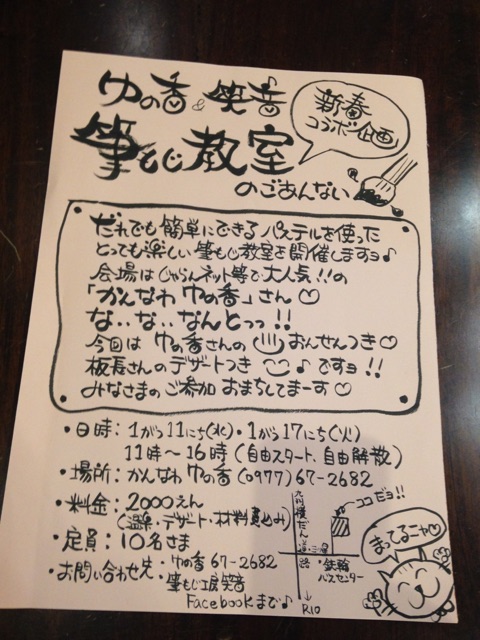 ゆの香&笑音
新春
コラボ企画
筆もじ教室
のごあんない
だれでも簡単にできるパステルを使った
とっても楽しい筆もじ教室を開催しますョ♪
会場はじゃらんネット等で大人気!!の
「かんなわ ゆの香」さん♡
な、、な、、なんとっっ!!
今回は ゆの香さんの♨おんせんつき♡
板長さんのデザートつき ♪ですョ!!
みなさまのご参加 おまちしてまーす♡
・日時:1がつ11にち(水)・1がつ17にち(火)
11時〜16時(自由スタート、自由解散)
・場所:かんなわ ゆの香(0977)67-2682
・料金:2000えん
(温泉・デザート・材料費込み)
・定員:10名さま
・お問い合わせ先・ゆの香 67-2682
・筆もじ工房 笑音
Facebookまで♪
ココだョ!!
九州横だん道路
・鉄輪
バスセンター
↓
R10
まってるニャ♡